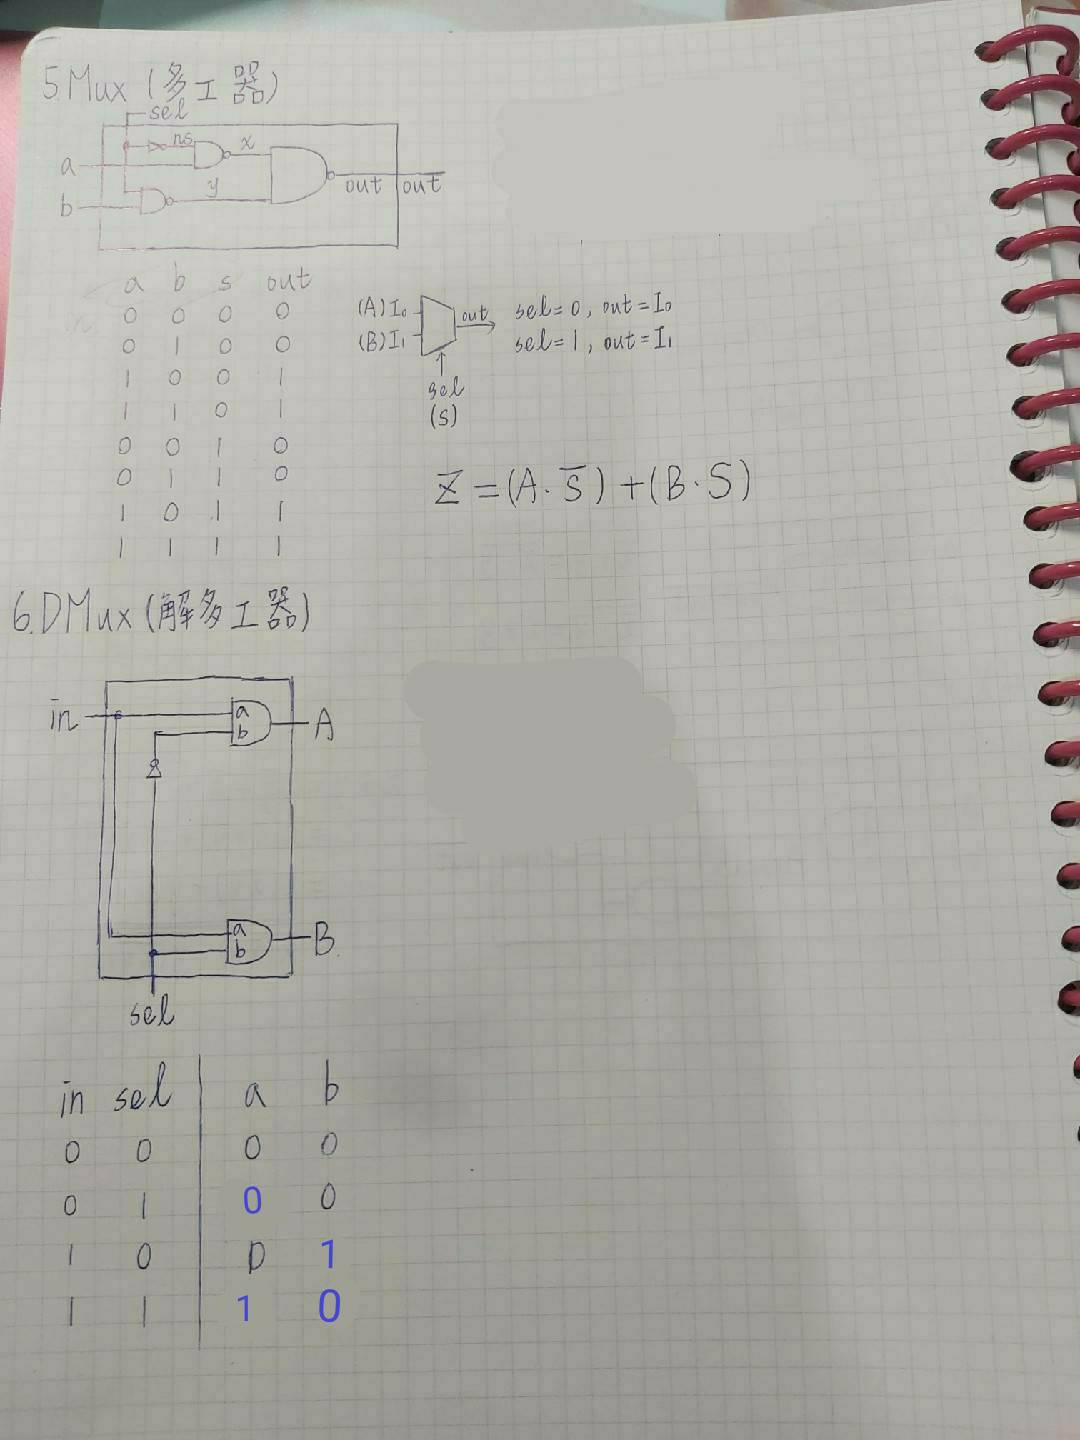 5.Mux (多工器)
sel
a
ns
x
b
y
out
out
a b s out
0 0 0 0
0 1 0 0
1 0 0 1
1 1 0 1
0 0 1 0
0 1 1 0
1 0 1 1
1 1 1 1
(A)I₀
(B)I₁
out
sel
(S)
sel=0, out=I₀
sel=1, out=I₁
Z=(A·S̅)+(B·S)
6.DMux(解多工器)
in
a
b
A
a
b
B
sel
in sel a b
0 0 0 0
0 1 0 0
1 0 D 1
1 1 1 0